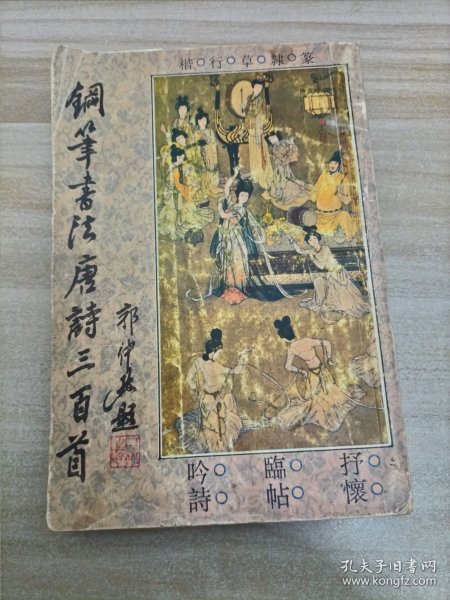 楷○行○草○隸○篆
鋼筆書法唐詩三百首
郭仲選題
吟○詩○
臨○帖○
抒○懷○
孔夫子旧书网
www.kongfz.com